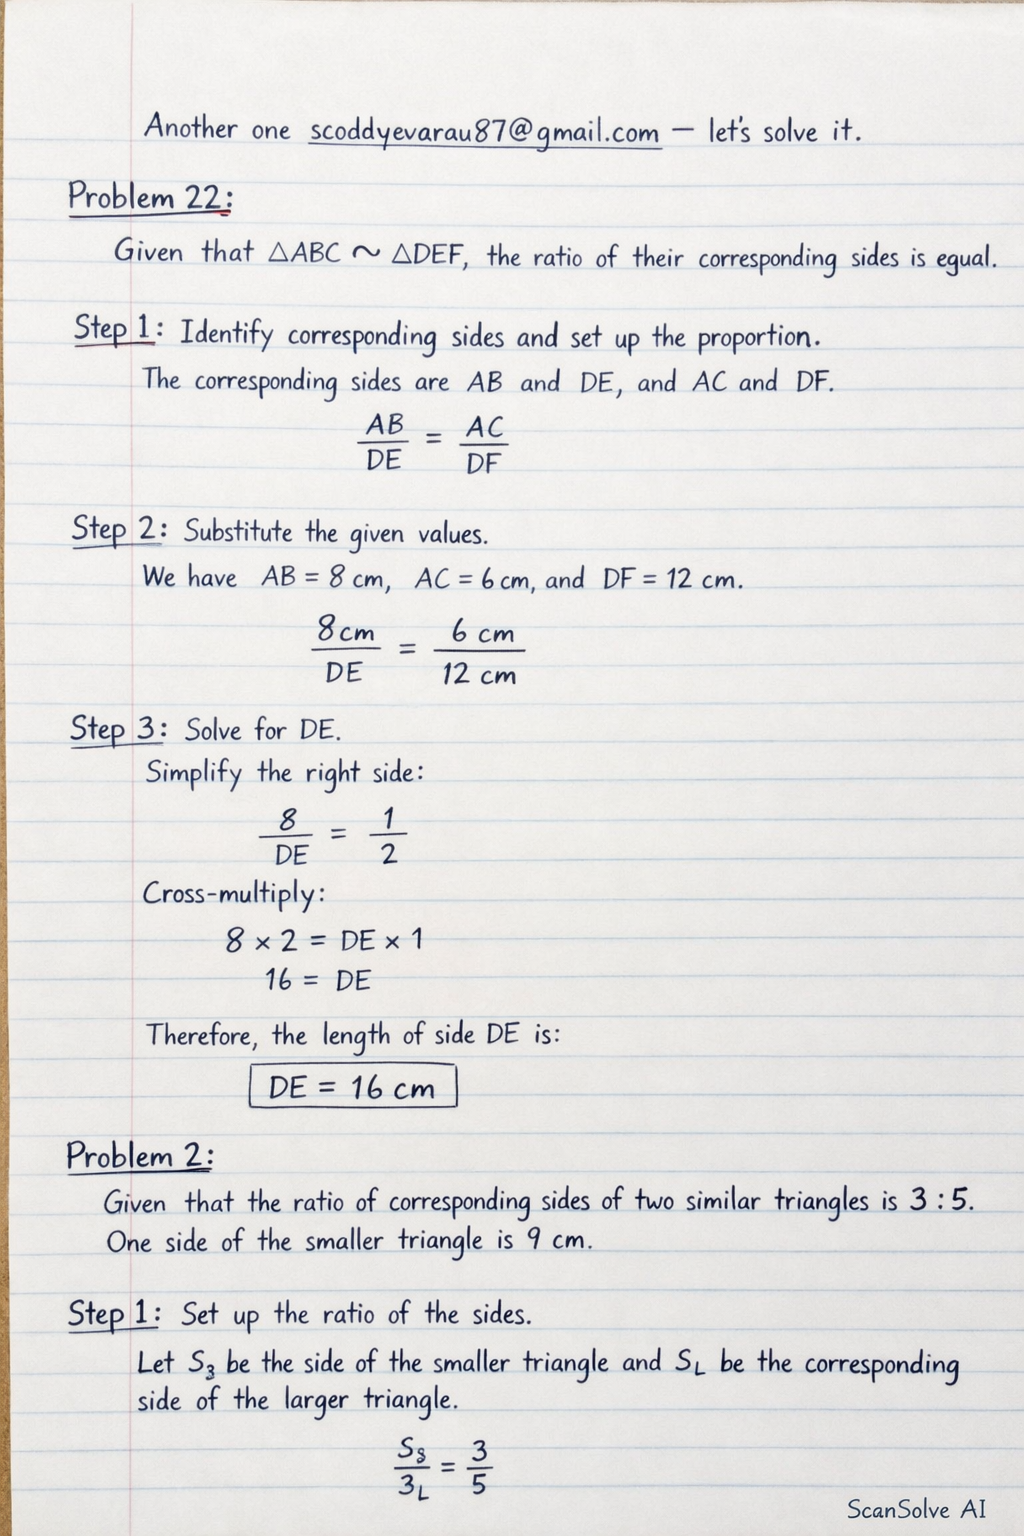 Another one scoddyevarau87@gmail.com — let's solve it.
Problem 22:
Given that △ABC ~ △DEF, the ratio of their corresponding sides is equal.
Step 1: Identify corresponding sides and set up the proportion.
The corresponding sides are AB and DE, and AC and DF.
AB/DE = AC/DF
Step 2: Substitute the given values.
We have AB = 8 cm, AC = 6 cm, and DF = 12 cm.
8 cm/DE = 6 cm/12 cm
Step 3: Solve for DE.
Simplify the right side:
8/DE = 1/2
Cross-multiply:
8 × 2 = DE × 1
16 = DE
Therefore, the length of side DE is:
DE = 16 cm
Problem 2:
Given that the ratio of corresponding sides of two similar triangles is 3 : 5.
One side of the smaller triangle is 9 cm.
Step 1: Set up the ratio of the sides.
Let S₃ be the side of the smaller triangle and S_L be the corresponding
side of the larger triangle.
S₈/3_L = 3/5
ScanSolve AI